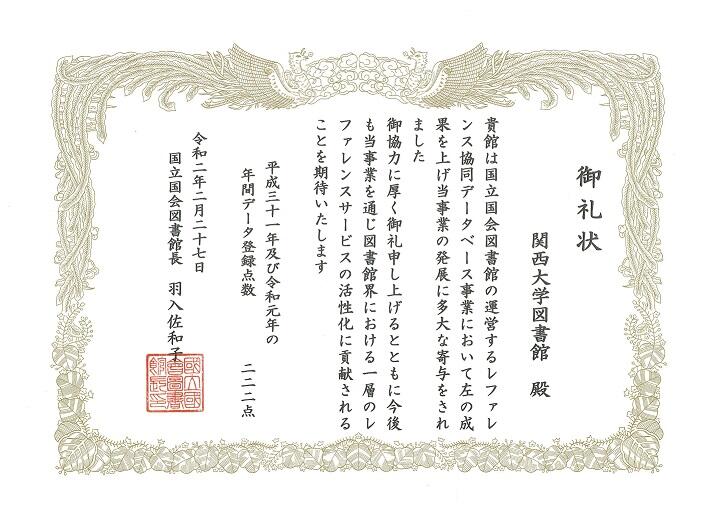 御礼状
関西大学図書館 殿
貴館は国立国会図書館の運営するレファレ
ンス協同データベース事業において左の成
果を上げ当事業の発展に多大な寄与をされ
ました
御協力に厚く御礼申し上げるとともに今後
も当事業を通じ図書館界における一層のレ
ファレンスサービスの活性化に貢献される
ことを期待いたします
平成三十一年及び令和元年の
年間データ登録点数 二二二点
令和二年二月二十七日
国立国会図書館長 羽入佐和子